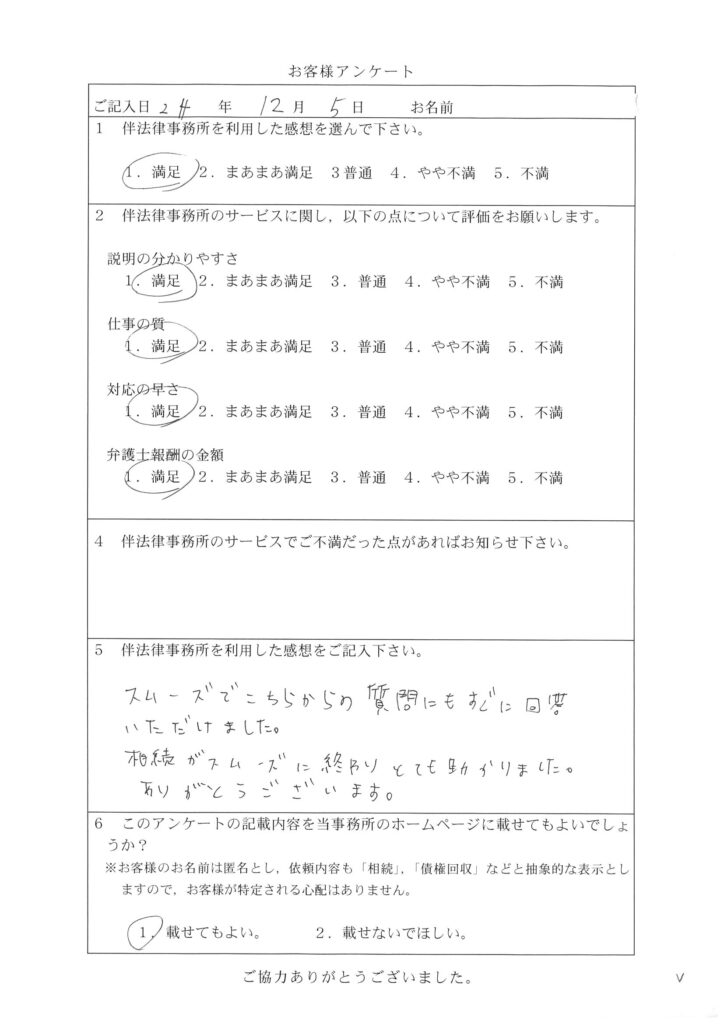 お客様アンケート
ご記入日 24 年 12月 5日 お名前
1 伴法律事務所を利用した感想を選んで下さい。
1．満足 2．まあまあ満足 3普通 4．やや不満 5．不満
2 伴法律事務所のサービスに関し，以下の点について評価をお願いします。
説明の分かりやすさ
1．満足 2．まあまあ満足 3．普通 4．やや不満 5．不満
仕事の質
1．満足 2．まあまあ満足 3．普通 4．やや不満 5．不満
対応の早さ
1．満足 2．まあまあ満足 3．普通 4．やや不満 5．不満
弁護士報酬の金額
1．満足 2．まあまあ満足 3．普通 4．やや不満 5．不満
4 伴法律事務所のサービスでご不満だった点があればお知らせ下さい。
5 伴法律事務所を利用した感想をご記入下さい。
スムーズでこちらからの質問にもすぐに回答
いただけました。
相続がスムーズに終わりとても助かりました。
ありがとうございます。
6 このアンケートの記載内容を当事務所のホームページに載せてもよいでしょ
うか？
※お客様のお名前は匿名とし，依頼内容も「相続」，「債権回収」などと抽象的な表示とし
ますので，お客様が特定される心配はありません。
1．載せてもよい。 2．載せないでほしい。
ご協力ありがとうございました。
v